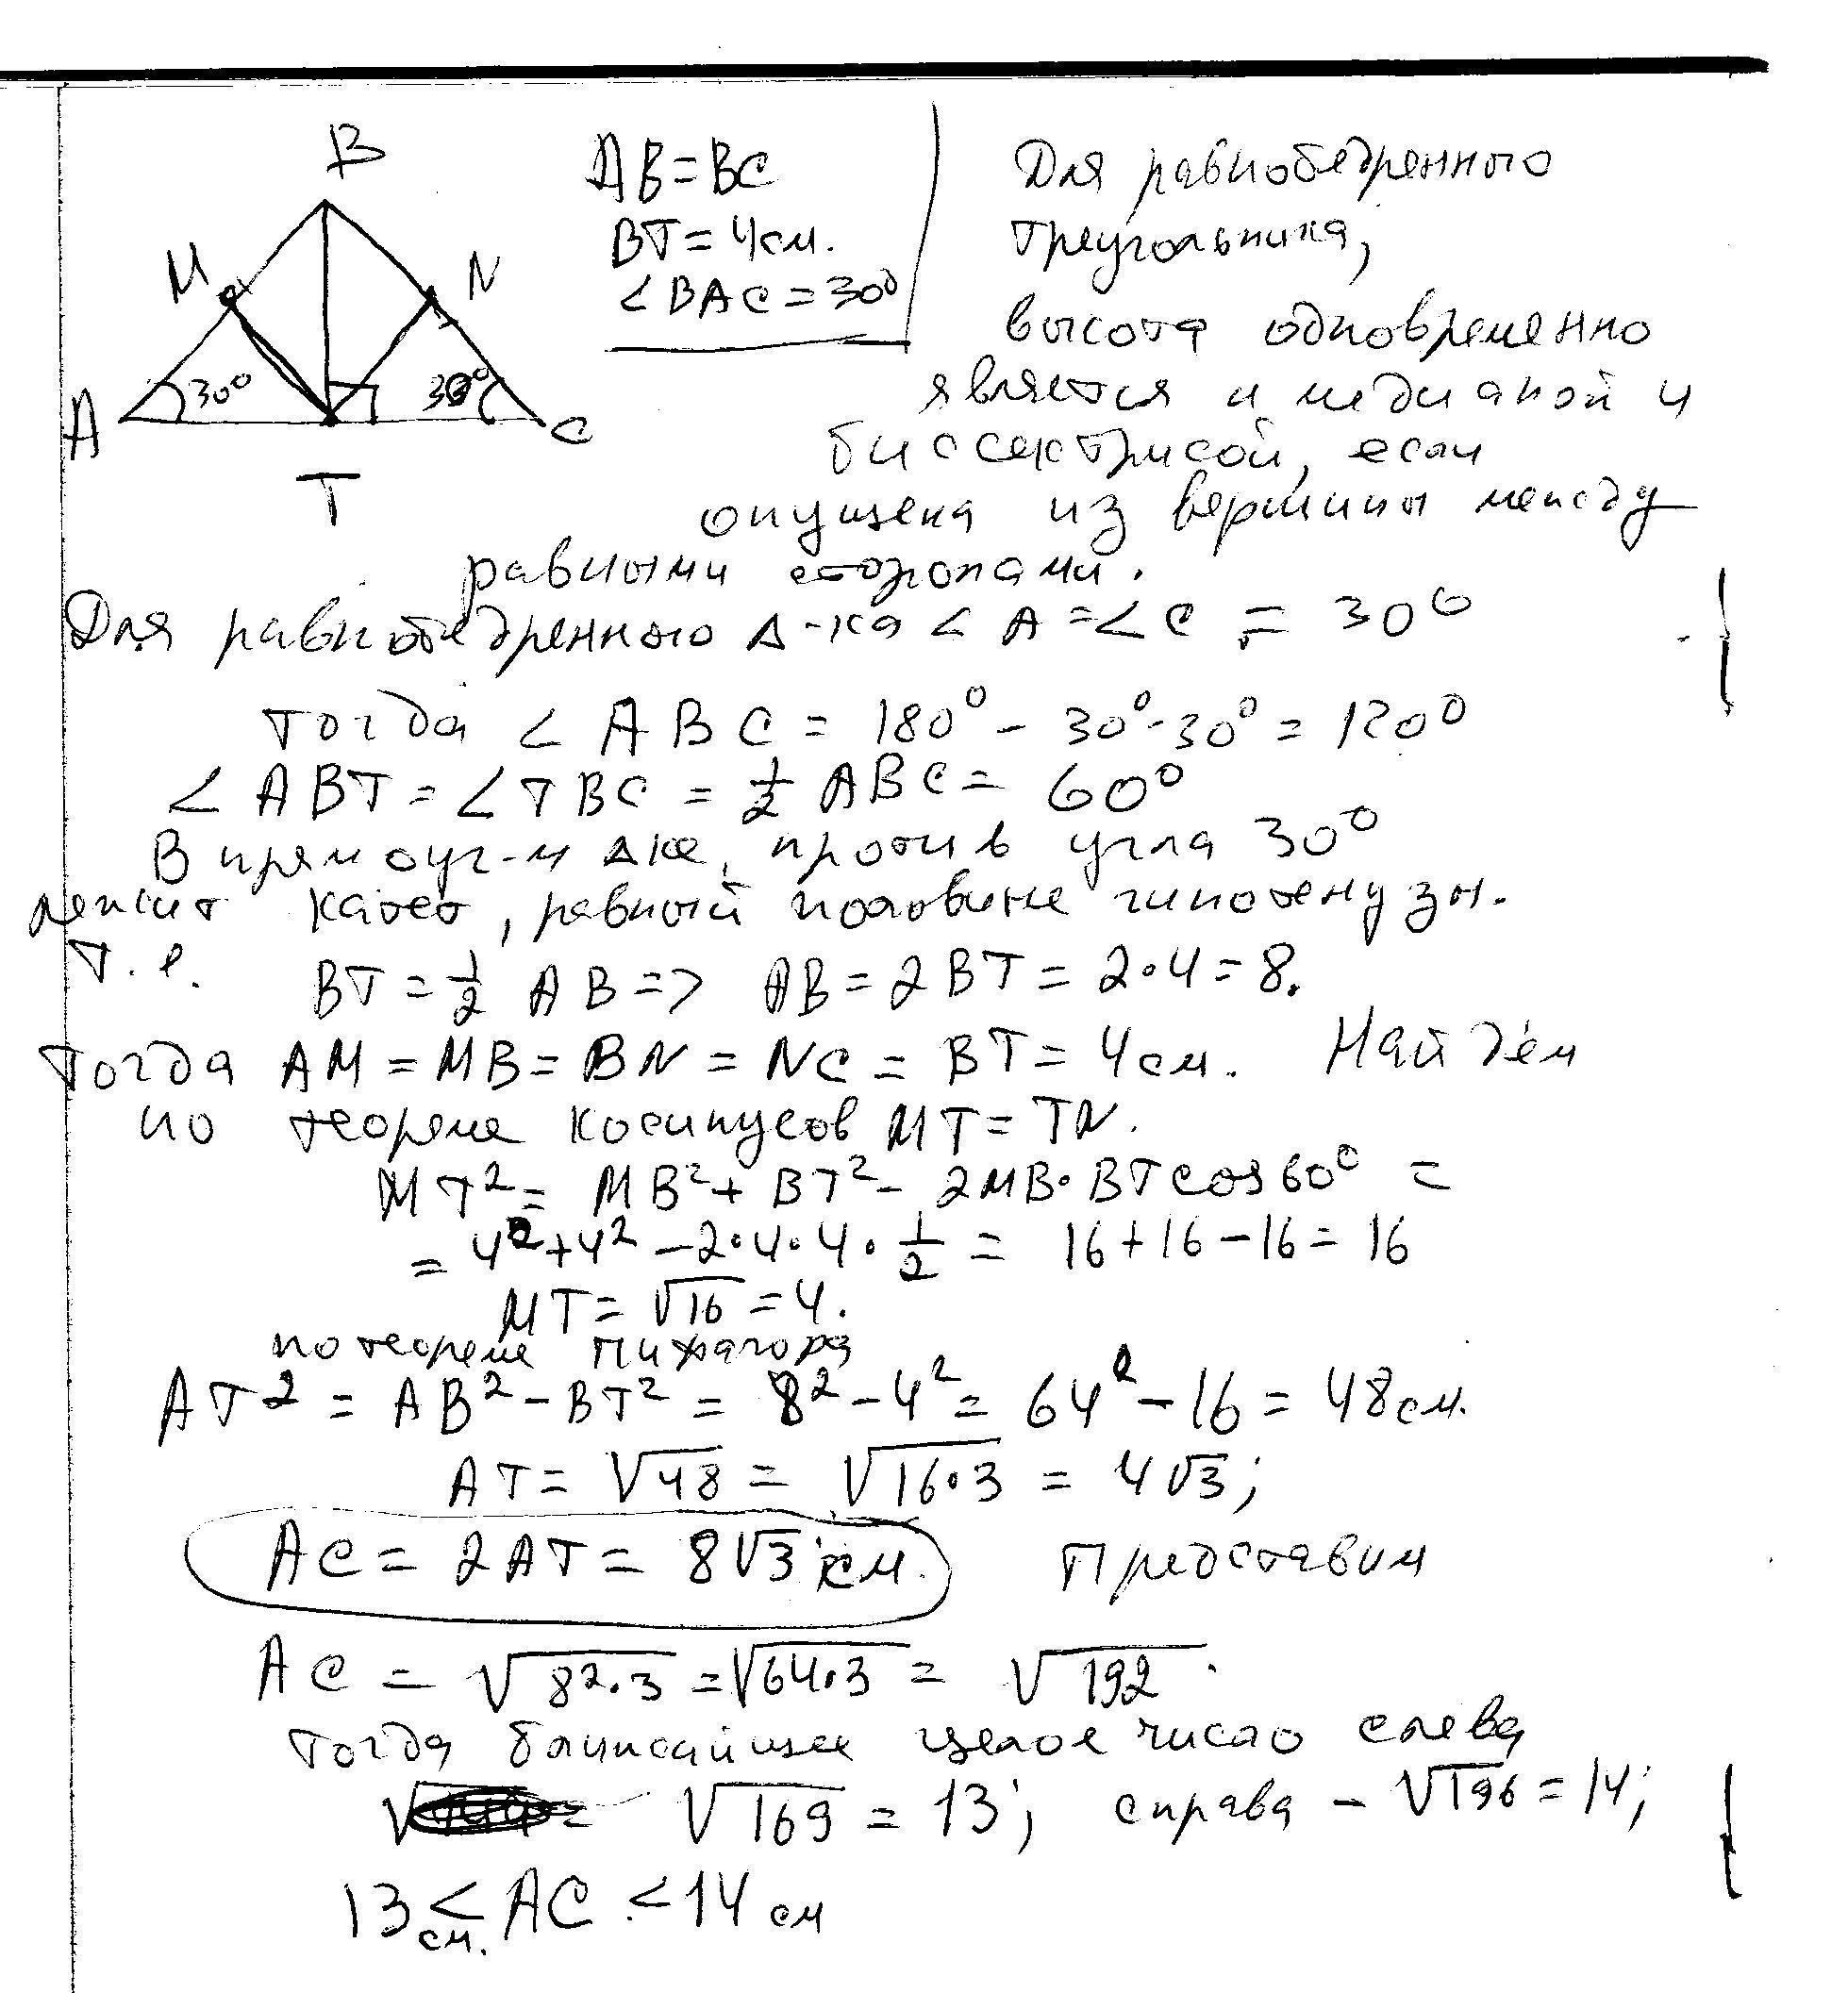 B
M
N
A
30°
30°
C
T
AB = BC
BT = 4 см.
∠BAC = 30°
Для равнобедренного
треугольника,
высота одновременно
является и медианой и
биссектрисой, если
опущена из вершины между
равными сторонами.
Для равнобедренного Δ-ка ∠A = ∠C = 30°
тогда ∠ABC = 180° - 30° - 30° = 120°
∠ABT = ∠TBC = 1/2 ABC = 60°
В прямоуг-м Δке, против угла 30°
лежит катет, равный половине гипотенузы.
т.е. BT = 1/2 AB => AB = 2BT = 2·4 = 8.
Тогда AM = MB = BN = NC = BT = 4 см. Найдём
по теореме косинусов MT = TN.
MT² = MB² + BT² - 2MB·BT cos60° =
= 4² + 4² - 2·4·4·1/2 = 16 + 16 - 16 = 16
MT = √16 = 4.
по теореме Пифагора
AT² = AB² - BT² = 8² - 4² = 64² - 16 = 48 см.
AT = √48 = √16·3 = 4√3;
AC = 2AT = 8√3 см. Представим
AC = √8²·3 = √64·3 = √192.
тогда ближайшее целое число слева
√169 = 13; справа - √196 = 14;
13 см. < AC < 14 см